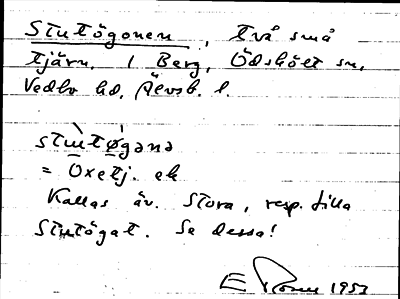 Stutögonen, två små
tjärn. I Berg, Ödskölt sn,
Vedbo hd, Älvsb. l.
stùtø̀gənə
= Oxetj. ek
Kallas äv. Stora, resp. Lilla
Stutögat. Se dessa!
E. 1953